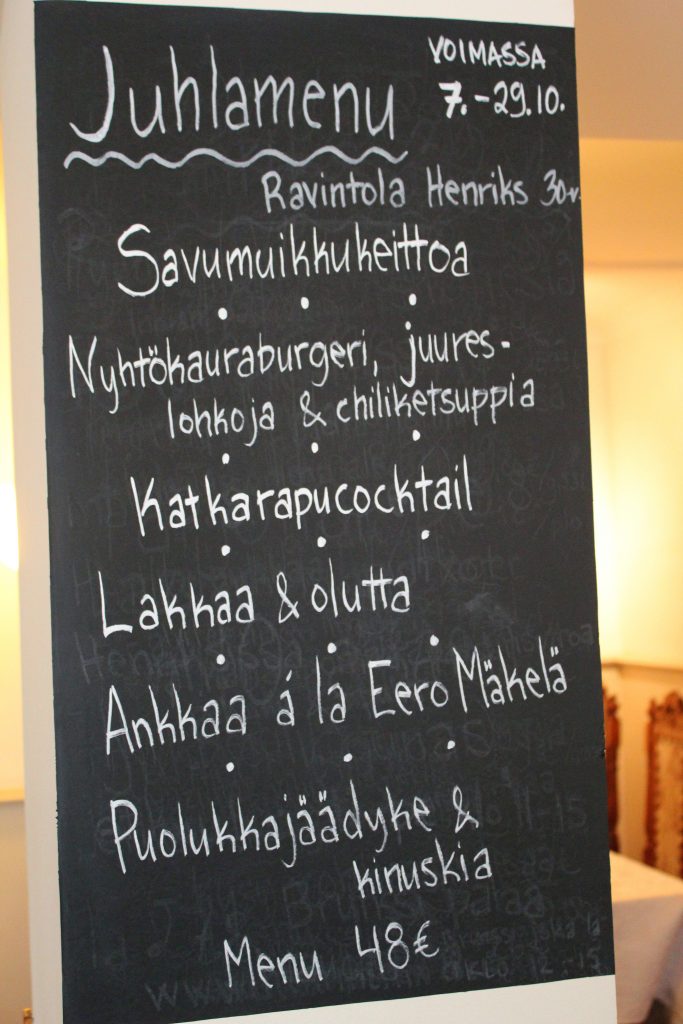 Juhlamenu
VOIMASSA
7.-29.10.
Ravintola Henriks 30-v.
Savumuikkukeittoa
Nyhtökauraburgeri, juures-
lohkoja & chiliketsuppia
Katkarapucocktail
Lakkaa & olutta
Ankkaa á la Eero Mäkelä
Puolukkajäädyke &
kinuskia
Menu 48€